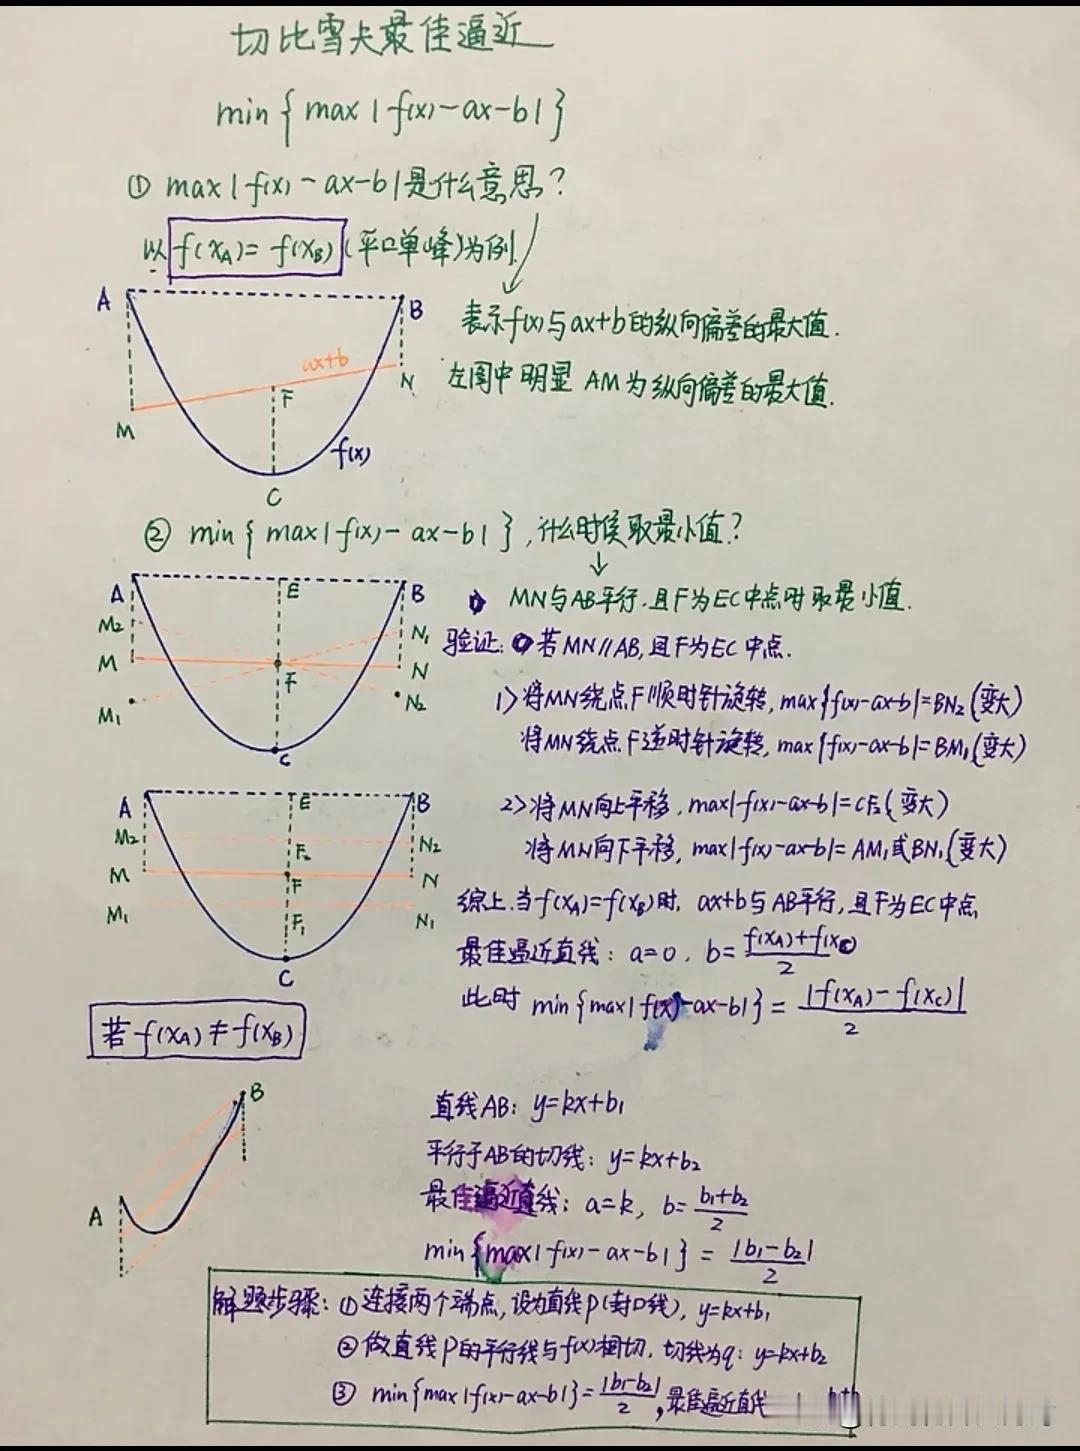 切比雪夫最佳逼近
min{max|f(x)-ax-b|}
① max|f(x)-ax-b|是什么意思?
以 f(xA)=f(xB) (平口单峰)为例.
A
B
ax+b
F
N
M
f(x)
C
表示f(x)与ax+b的纵向偏差的最大值.
左图中明显 AM为纵向偏差的最大值.
② min{max|f(x)-ax-b|},什么时候取最小值?
A
E
B
M2
N1
M
F
N
M1
N2
C
MN与AB平行.且F为EC中点时取最小值.
验证: 若MN∥AB,且F为EC中点.
1>将MN绕点F顺时针旋转,max{f(x)-ax-b|=BN2(变大)
将MN绕点F逆时针旋转,max|f(x)-ax-b|=BM1(变大)
A
E
B
M2
F2
N2
M
F
N
M1
F1
N1
C
2>将MN向上平移,max|f(x)-ax-b|=CF2(变大)
将MN向下平移,max|f(x)-ax-b|=AM1或BN1(变大)
综上.当f(xA)=f(xB)时, ax+b与AB平行,且F为EC中点
最佳逼近直线: a=0, b=f(xA)+f(xC)/2
此时 min{max|f(x)-ax-b|}=|f(xA)-f(xC)|/2
若f(xA)≠f(xB)
B
A
直线AB: y=kx+b1
平行于AB的切线: y=kx+b2
最佳逼近直线: a=k, b=b1+b2/2
min{max|f(x)-ax-b|}=|b1-b2|/2
解题步骤: ①连接两个端点,设为直线p(封口线), y=kx+b1
②做直线p的平行线与f(x)相切,切线为q: y=kx+b2
③ min{max|f(x)-ax-b|}=|b1-b2|/2,最佳逼近直线